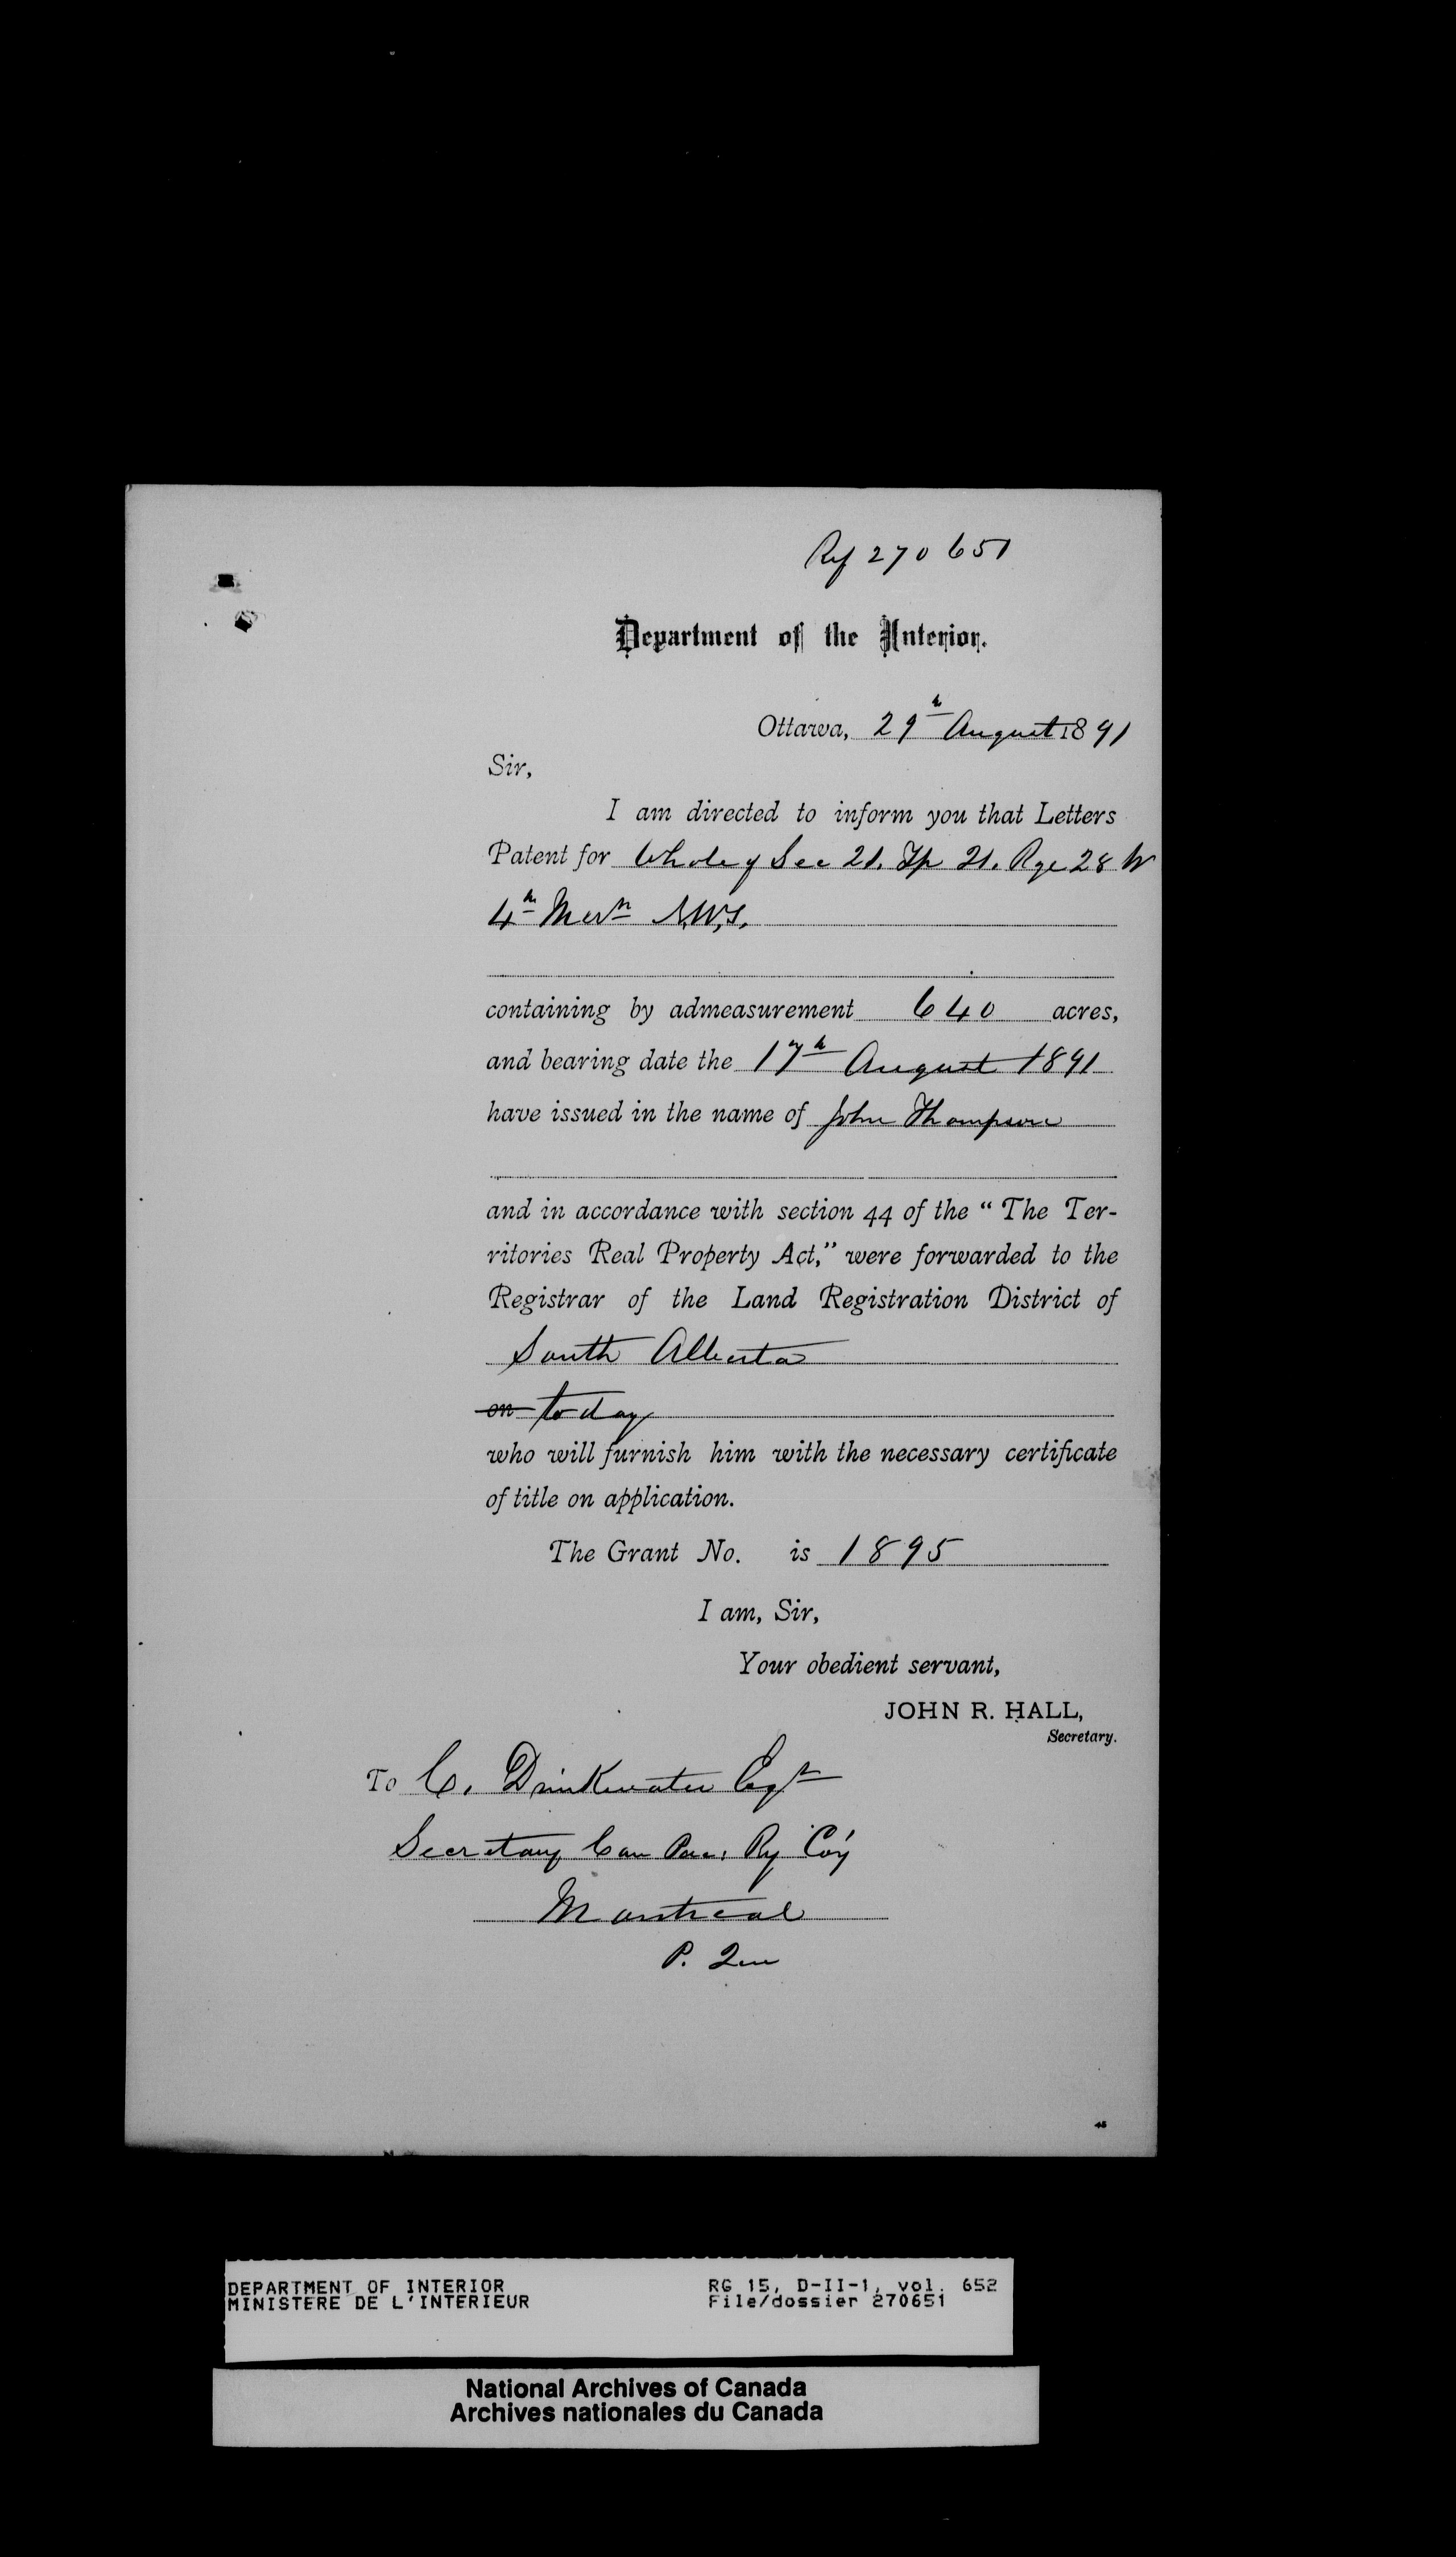 Ref 270651
Department of the Interior.
Ottawa, 29th August 1891
Sir,
I am directed to inform you that Letters
Patent for Whole of Sec 21. Tp 21. Rge 28 W
4th Mern N.W.T.
containing by admeasurement 640 acres,
and bearing date the 17th August 1891
have issued in the name of John Thompson
and in accordance with section 44 of the “The Ter-
ritories Real Property Act,” were forwarded to the
Registrar of the Land Registration District of
South Alberta
on to day
who will furnish him with the necessary certificate
of title on application.
The Grant No. is 1895
I am, Sir,
Your obedient servant,
JOHN R. HALL,
Secretary.
To C. Drinkwater Esqr
Secretary Can Pac. Ry Co'y
Montreal
P. Que
DEPARTMENT OF INTERIOR RG 15, D-II-1, vol. 652
MINISTERE DE L'INTERIEUR File/dossier 270651
National Archives of Canada
Archives nationales du Canada